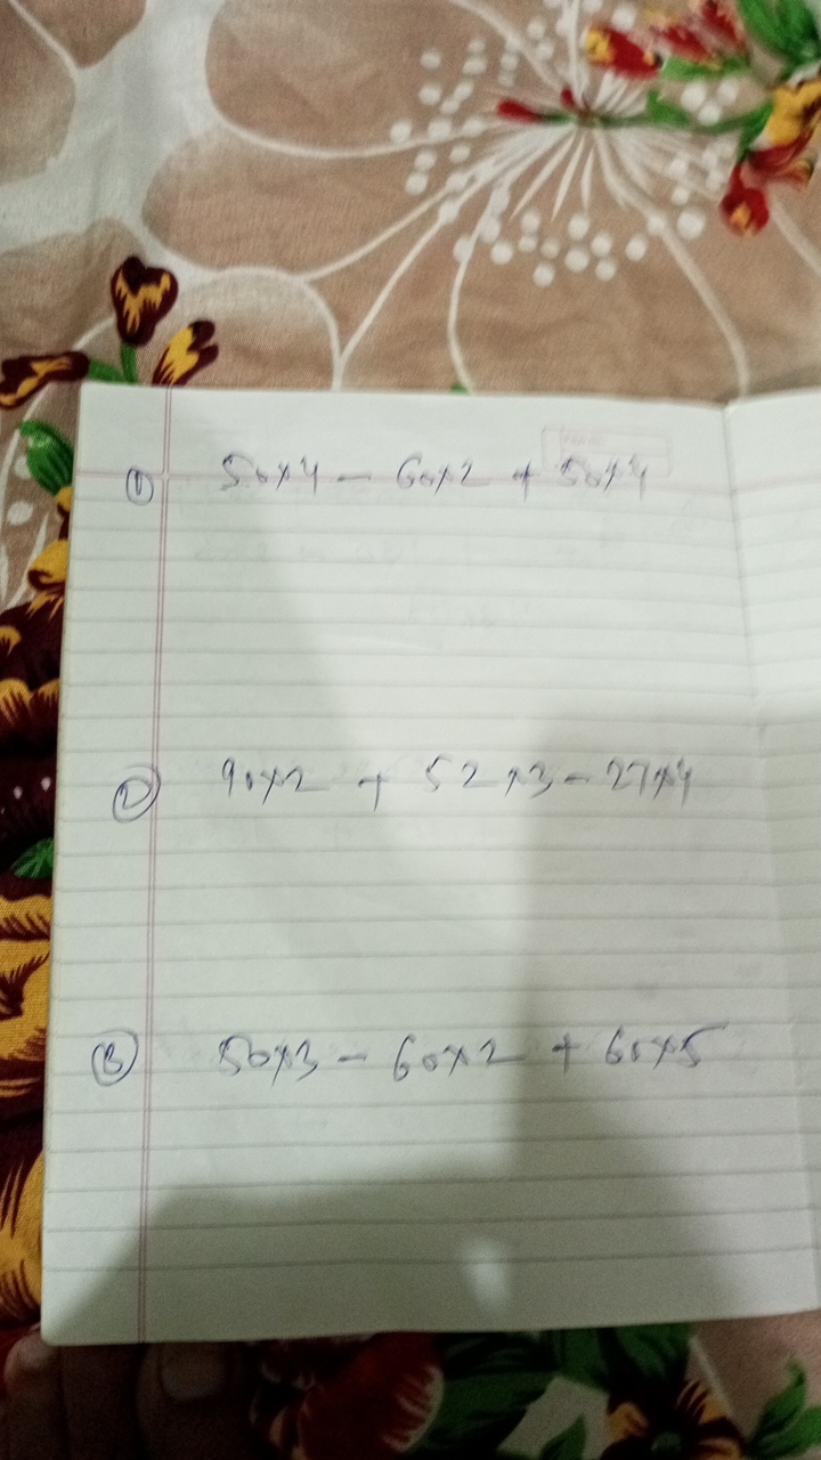 ① 50×4 - 60×2 + 50×4
② 90×2 + 52×3 - 27×4
③ 50×3 - 60×2 + 60×5